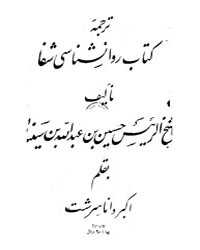 ترجمهٔ
کتاب روانشناسی شفا
تألیف
شیخ الرئیس حسین بن عبدالله بن سینا
بقلم
اکبر داناسرشت